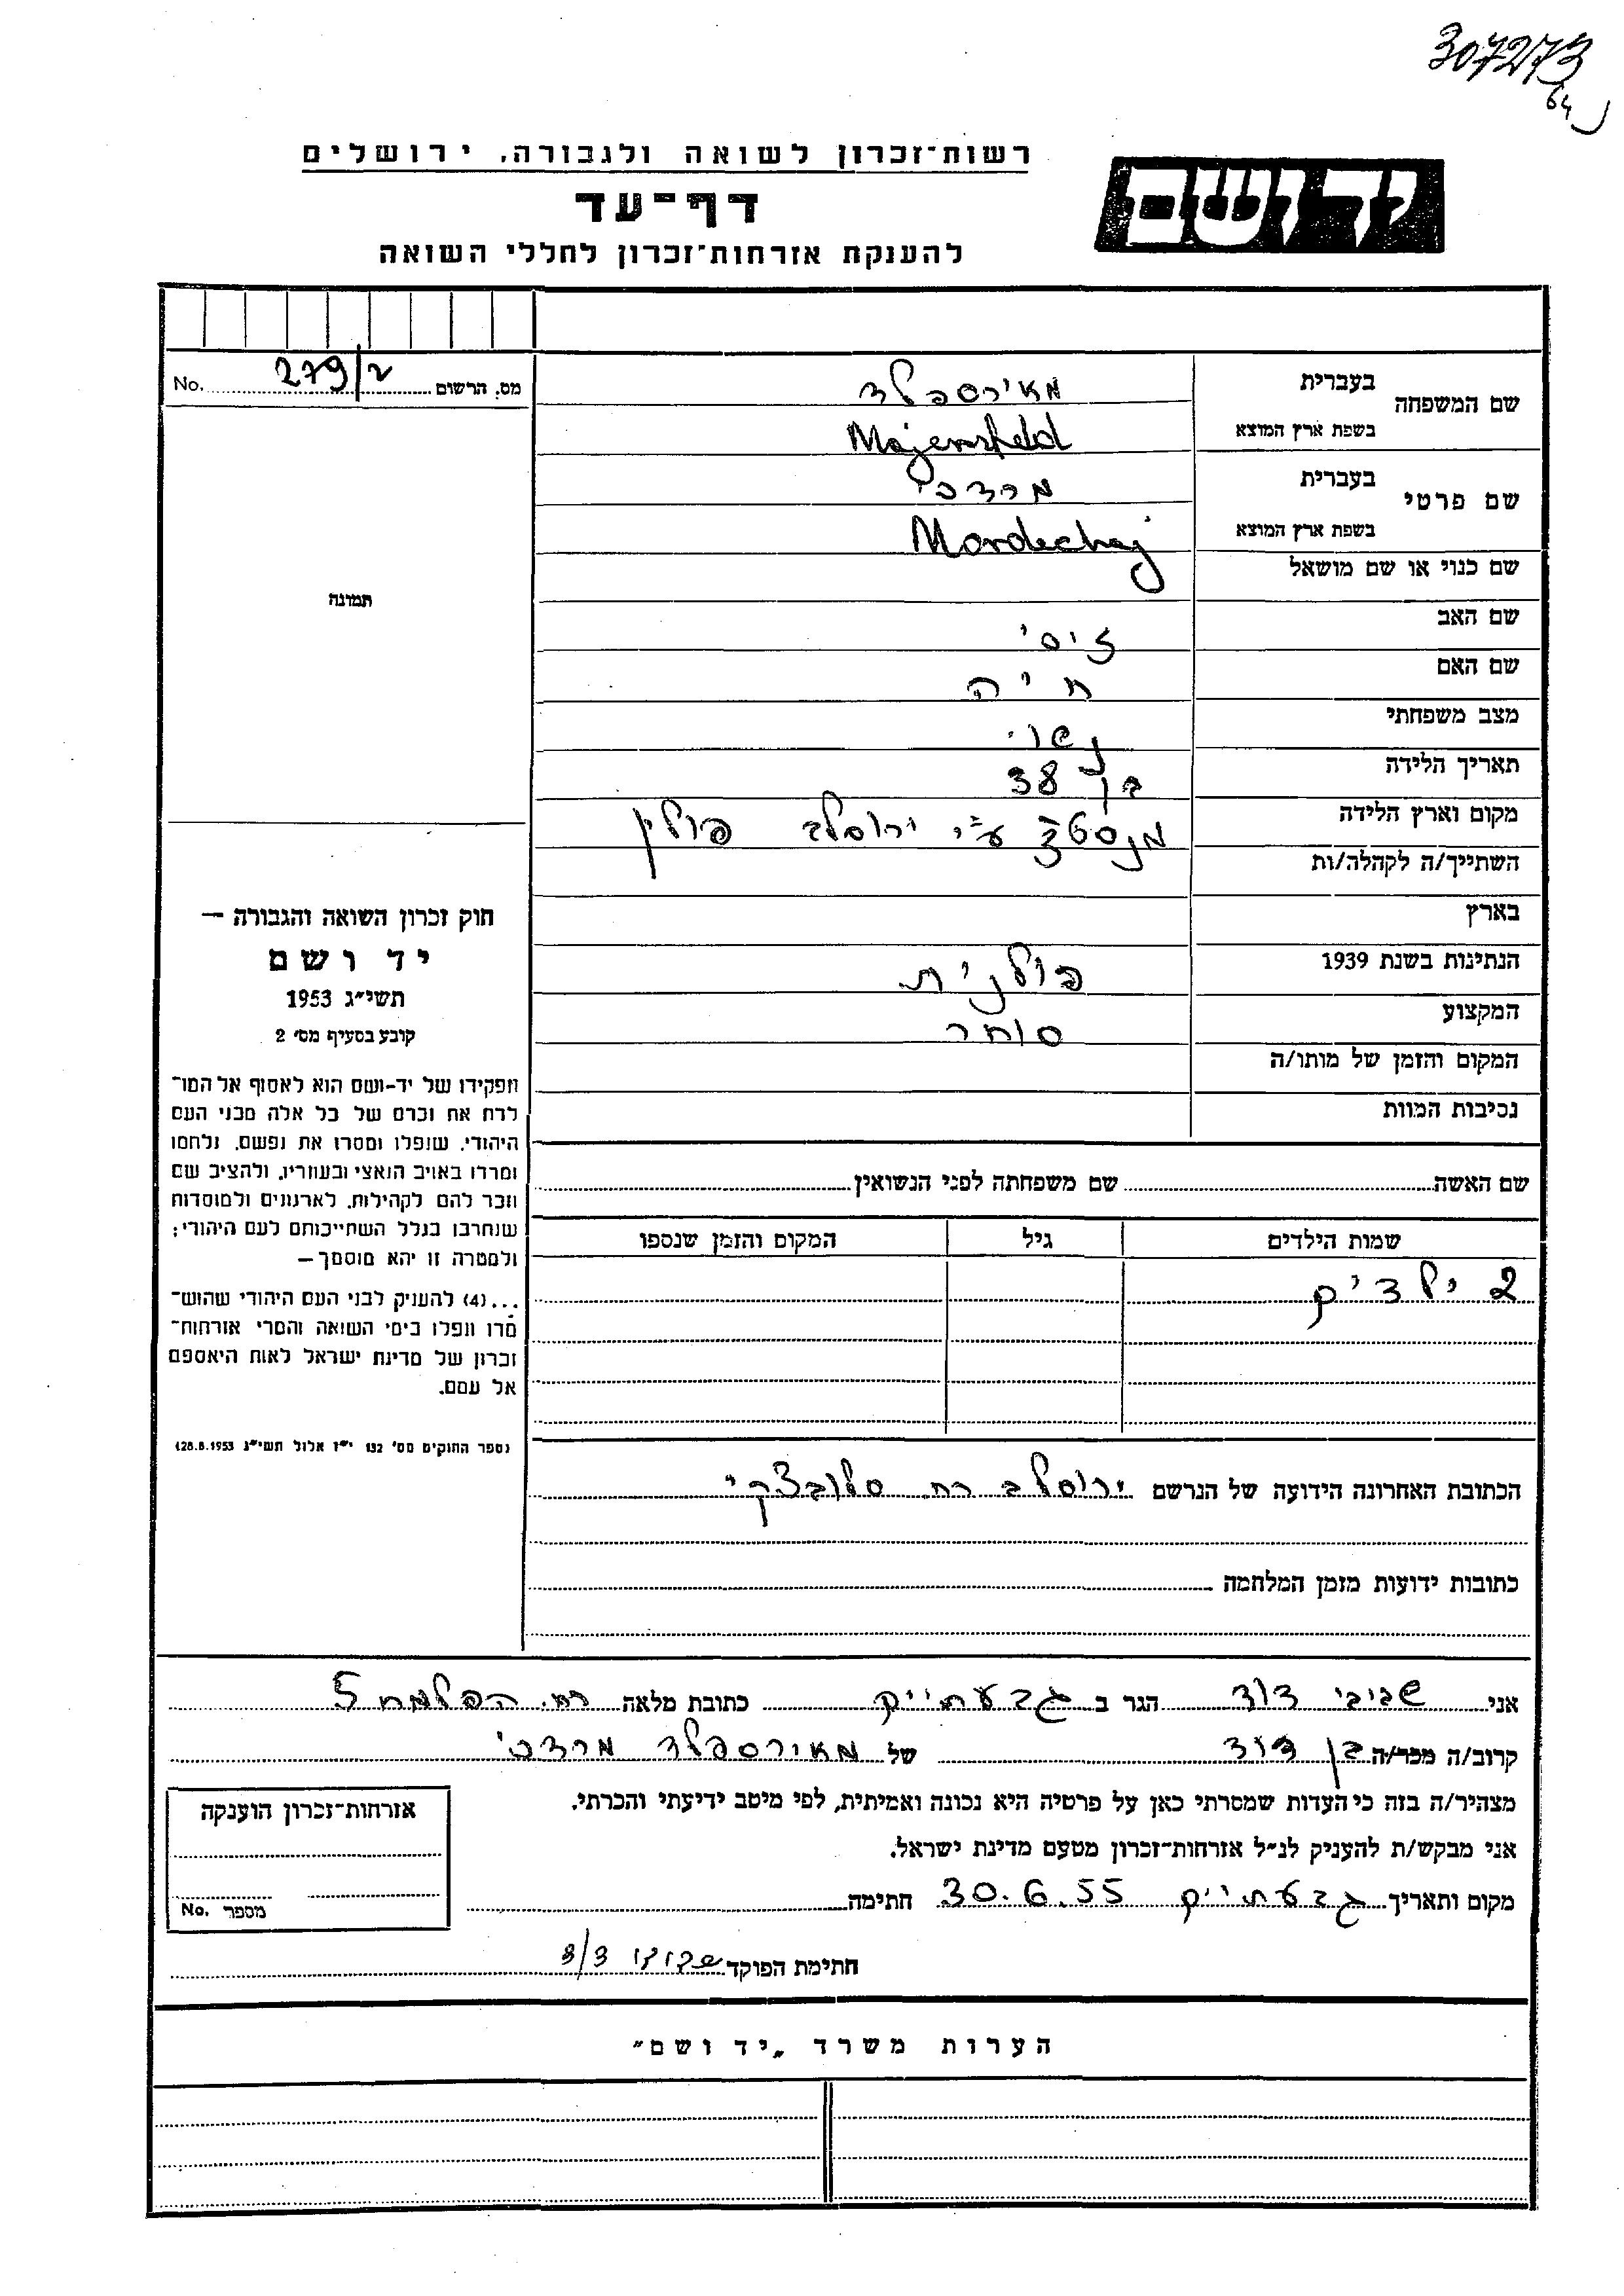 307273
64
יד ושם
רשות־זכרון לשואה ולגבורה, ירושלים
דף־עד
להענקת אזרחות־זכרון לחללי השואה
שם המשפחה בעברית מאירספלד
בשפת ארץ המוצא Majersfeld
שם פרטי בעברית מרדכי
בשפת ארץ המוצא Mordechaj
שם כנוי או שם מושאל
שם האב זיסי
שם האם חיה
מצב משפחתי נשוי
תאריך הלידה בן 38
מקום וארץ הלידה ע"י ירוסלב פולין
השתייך/ה לקהלה/ות
בארץ
הנתינות בשנת 1939 פולנית
המקצוע סוחר
המקום והזמן של מותו/ה
נסיבות המוות
מס. הרשום 279/2 No.
תמונה
חוק זכרון השואה והגבורה —
יד ושם
תשי״ג 1953
קובע בסעיף מס׳ 2
תפקידו של יד-ושם הוא לאסוף אל המו־
לדת את זכרם של כל אלה מבני העם
היהודי, שנפלו ומסרו את נפשם, נלחמו
ומרדו באויב הנאצי ובעוזריו, ולהציב שם
וזכר להם לקהילות, לארגונים ולמוסדות
שנחרבו בגלל השתייכותם לעם היהודי;
ולמטרה זו יהא מוסמך—
...(4) להעניק לבני העם היהודי שהוש־
מדו ונפלו בימי השואה והמרי אזרחות־
זכרון של מדינת ישראל לאות היאספם
אל עמם.
(ספר החוקים מס׳ 132 י״ז אלול תשי״ג 28.8.1953)
שם האשה שם משפחתה לפני הנשואין
שמות הילדים גיל המקום והזמן שנספו
2 ילדים
הכתובת האחרונה הידועה של הנרשם ירוסלב רח. סלובצקי
כתובות ידועות מזמן המלחמה
אני שביבי דוד הגר ב גבעתיים כתובת מלאה רח. הפלמח 5
קרוב/ה מכר/ה בן דוד של מאירספלד מרדכי
מצהיר/ה בזה כי העדות שמסרתי כאן על פרטיה היא נכונה ואמיתית, לפי מיטב ידיעתי והכרתי.
אני מבקש/ת להעניק לנ״ל אזרחות־זכרון מטעם מדינת ישראל.
מקום ותאריך גבעתיים 30.6.55 חתימה
חתימת הפוקד
אזרחות־זכרון הוענקה
מספר No.
הערות משרד „יד ושם״